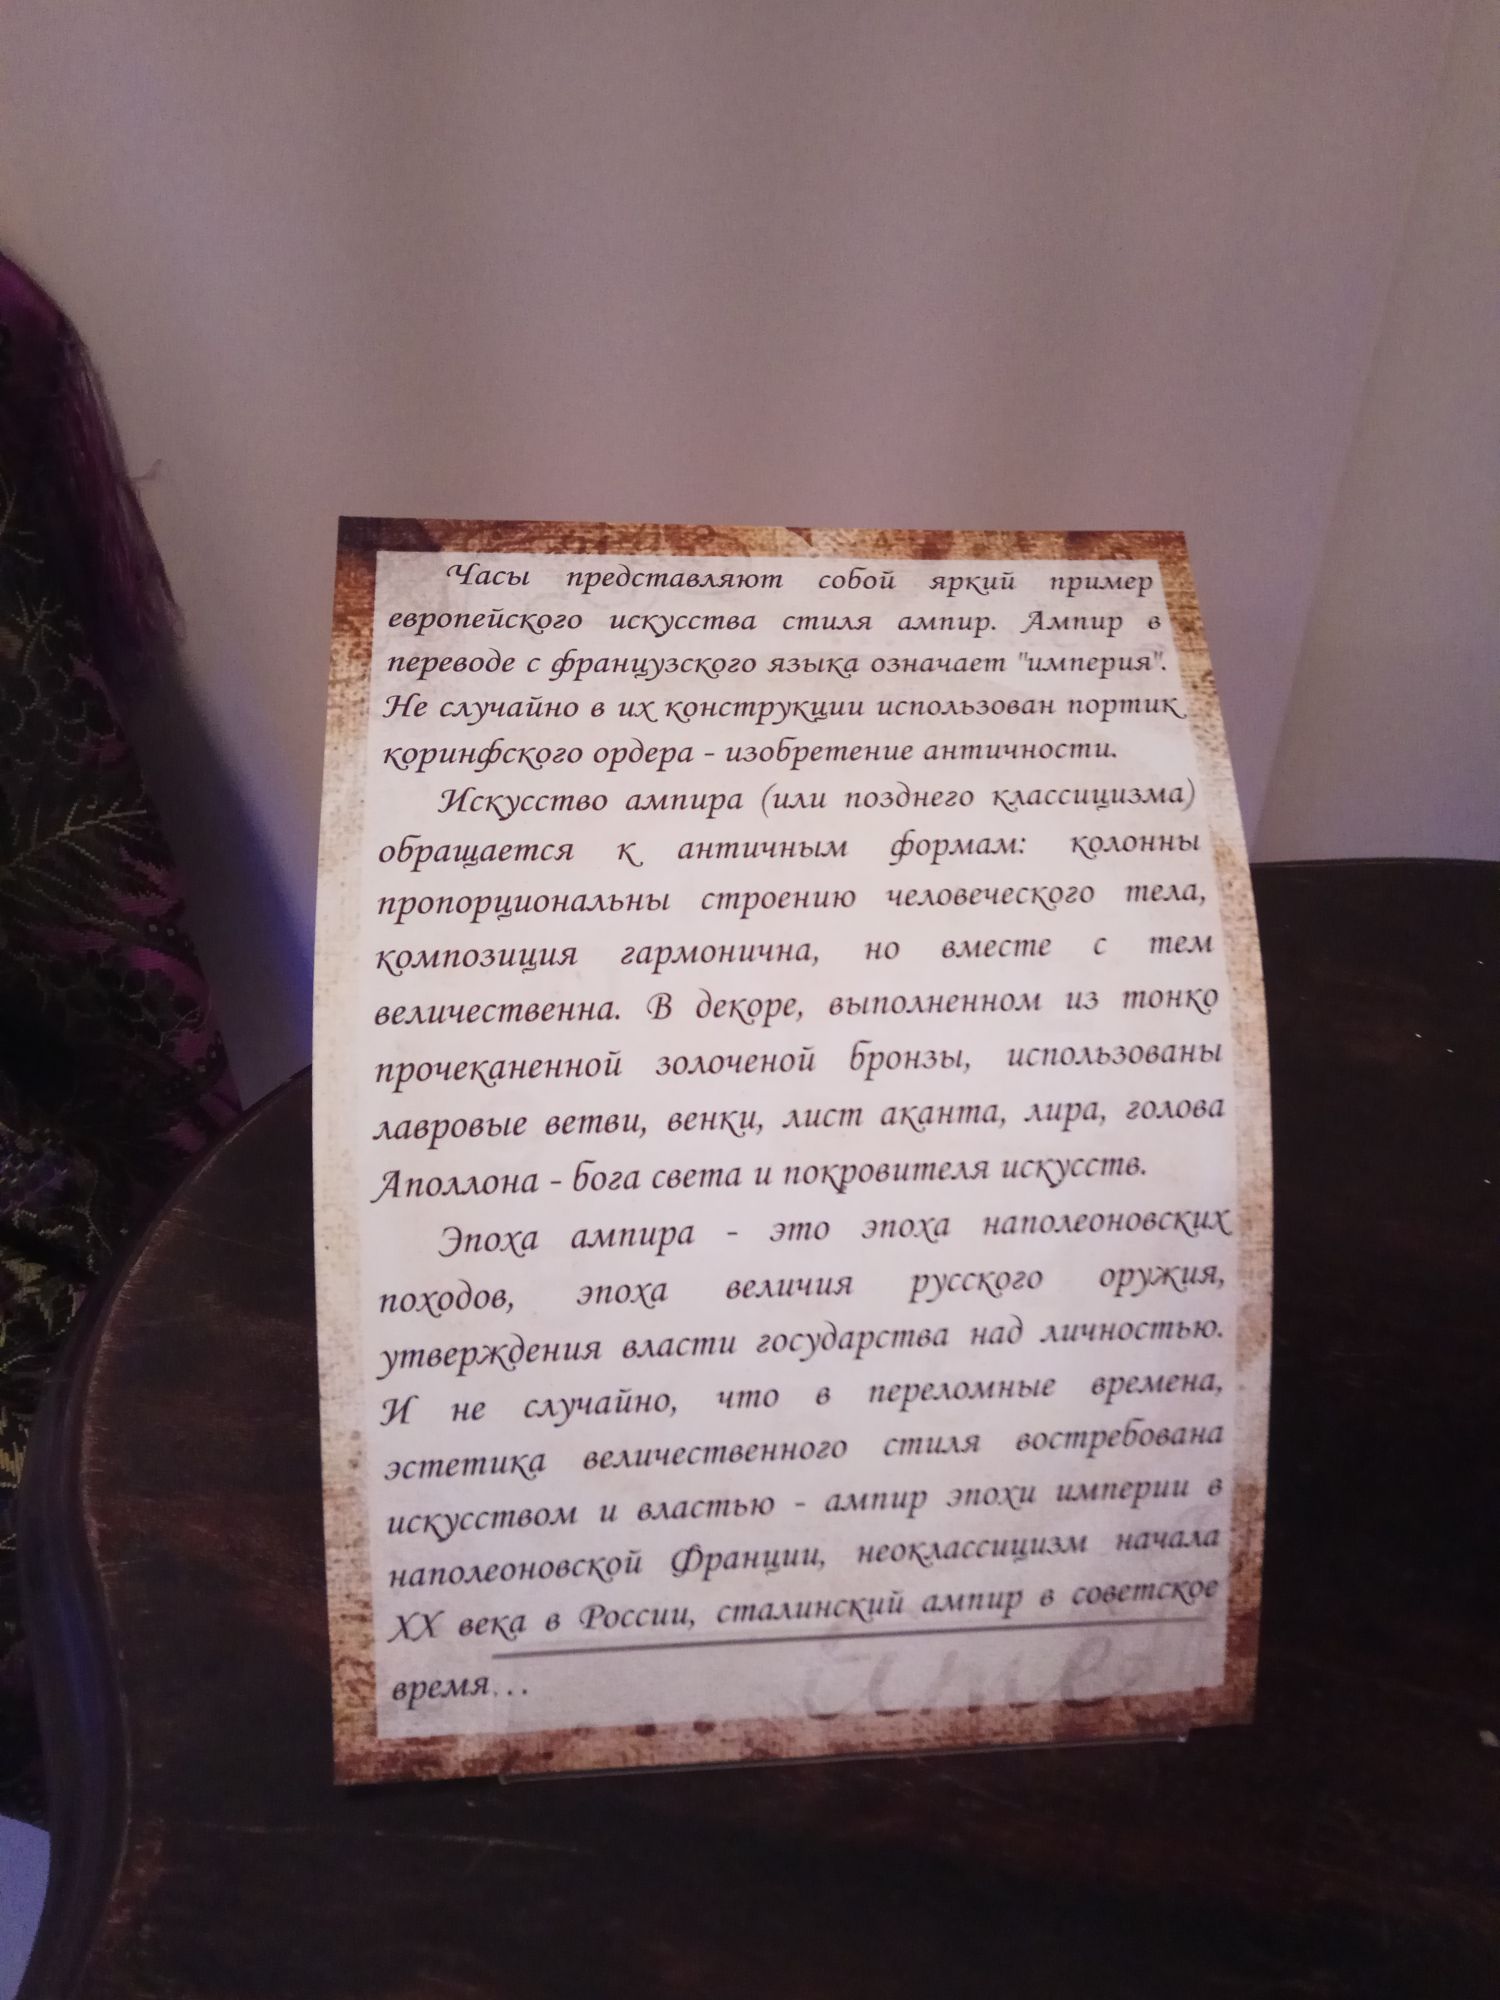 Часы представляют собой яркий пример
европейского искусства стиля ампир. Ампир в
переводе с французского языка означает "империя".
Не случайно в их конструкции использован портик
коринфского ордера - изобретение античности.
Искусство ампира (или позднего классицизма)
обращается к античным формам: колонны
пропорциональны строению человеческого тела,
композиция гармонична, но вместе с тем
величественна. В декоре, выполненном из тонко
прочеканенной золоченой бронзы, использованы
лавровые ветви, венки, лист аканта, лира, голова
Аполлона - бога света и покровителя искусств.
Эпоха ампира - это эпоха наполеоновских
походов, эпоха величия русского оружия,
утверждения власти государства над личностью.
И не случайно, что в переломные времена,
эстетика величественного стиля востребована
искусством и властью - ампир эпохи империи в
наполеоновской Франции, неоклассицизм начала
XX века в России, сталинский ампир в советское
время…